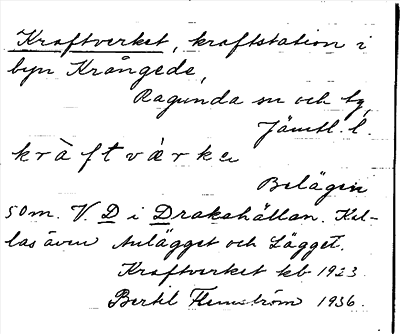 Kraftverket, kraftstation i
byn Krångede,
Ragunda sn och tg,
Jämtl. l.
kràftvárke
Belägen
50 m. V. D i Drakahällan. Kal-
las även Anlägget och Lägget.
Kraftverket kb 1923.
Bertil Flemström 1936.